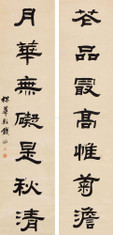 花品最高惟菊澹
月華無礙是秋清
錢泳